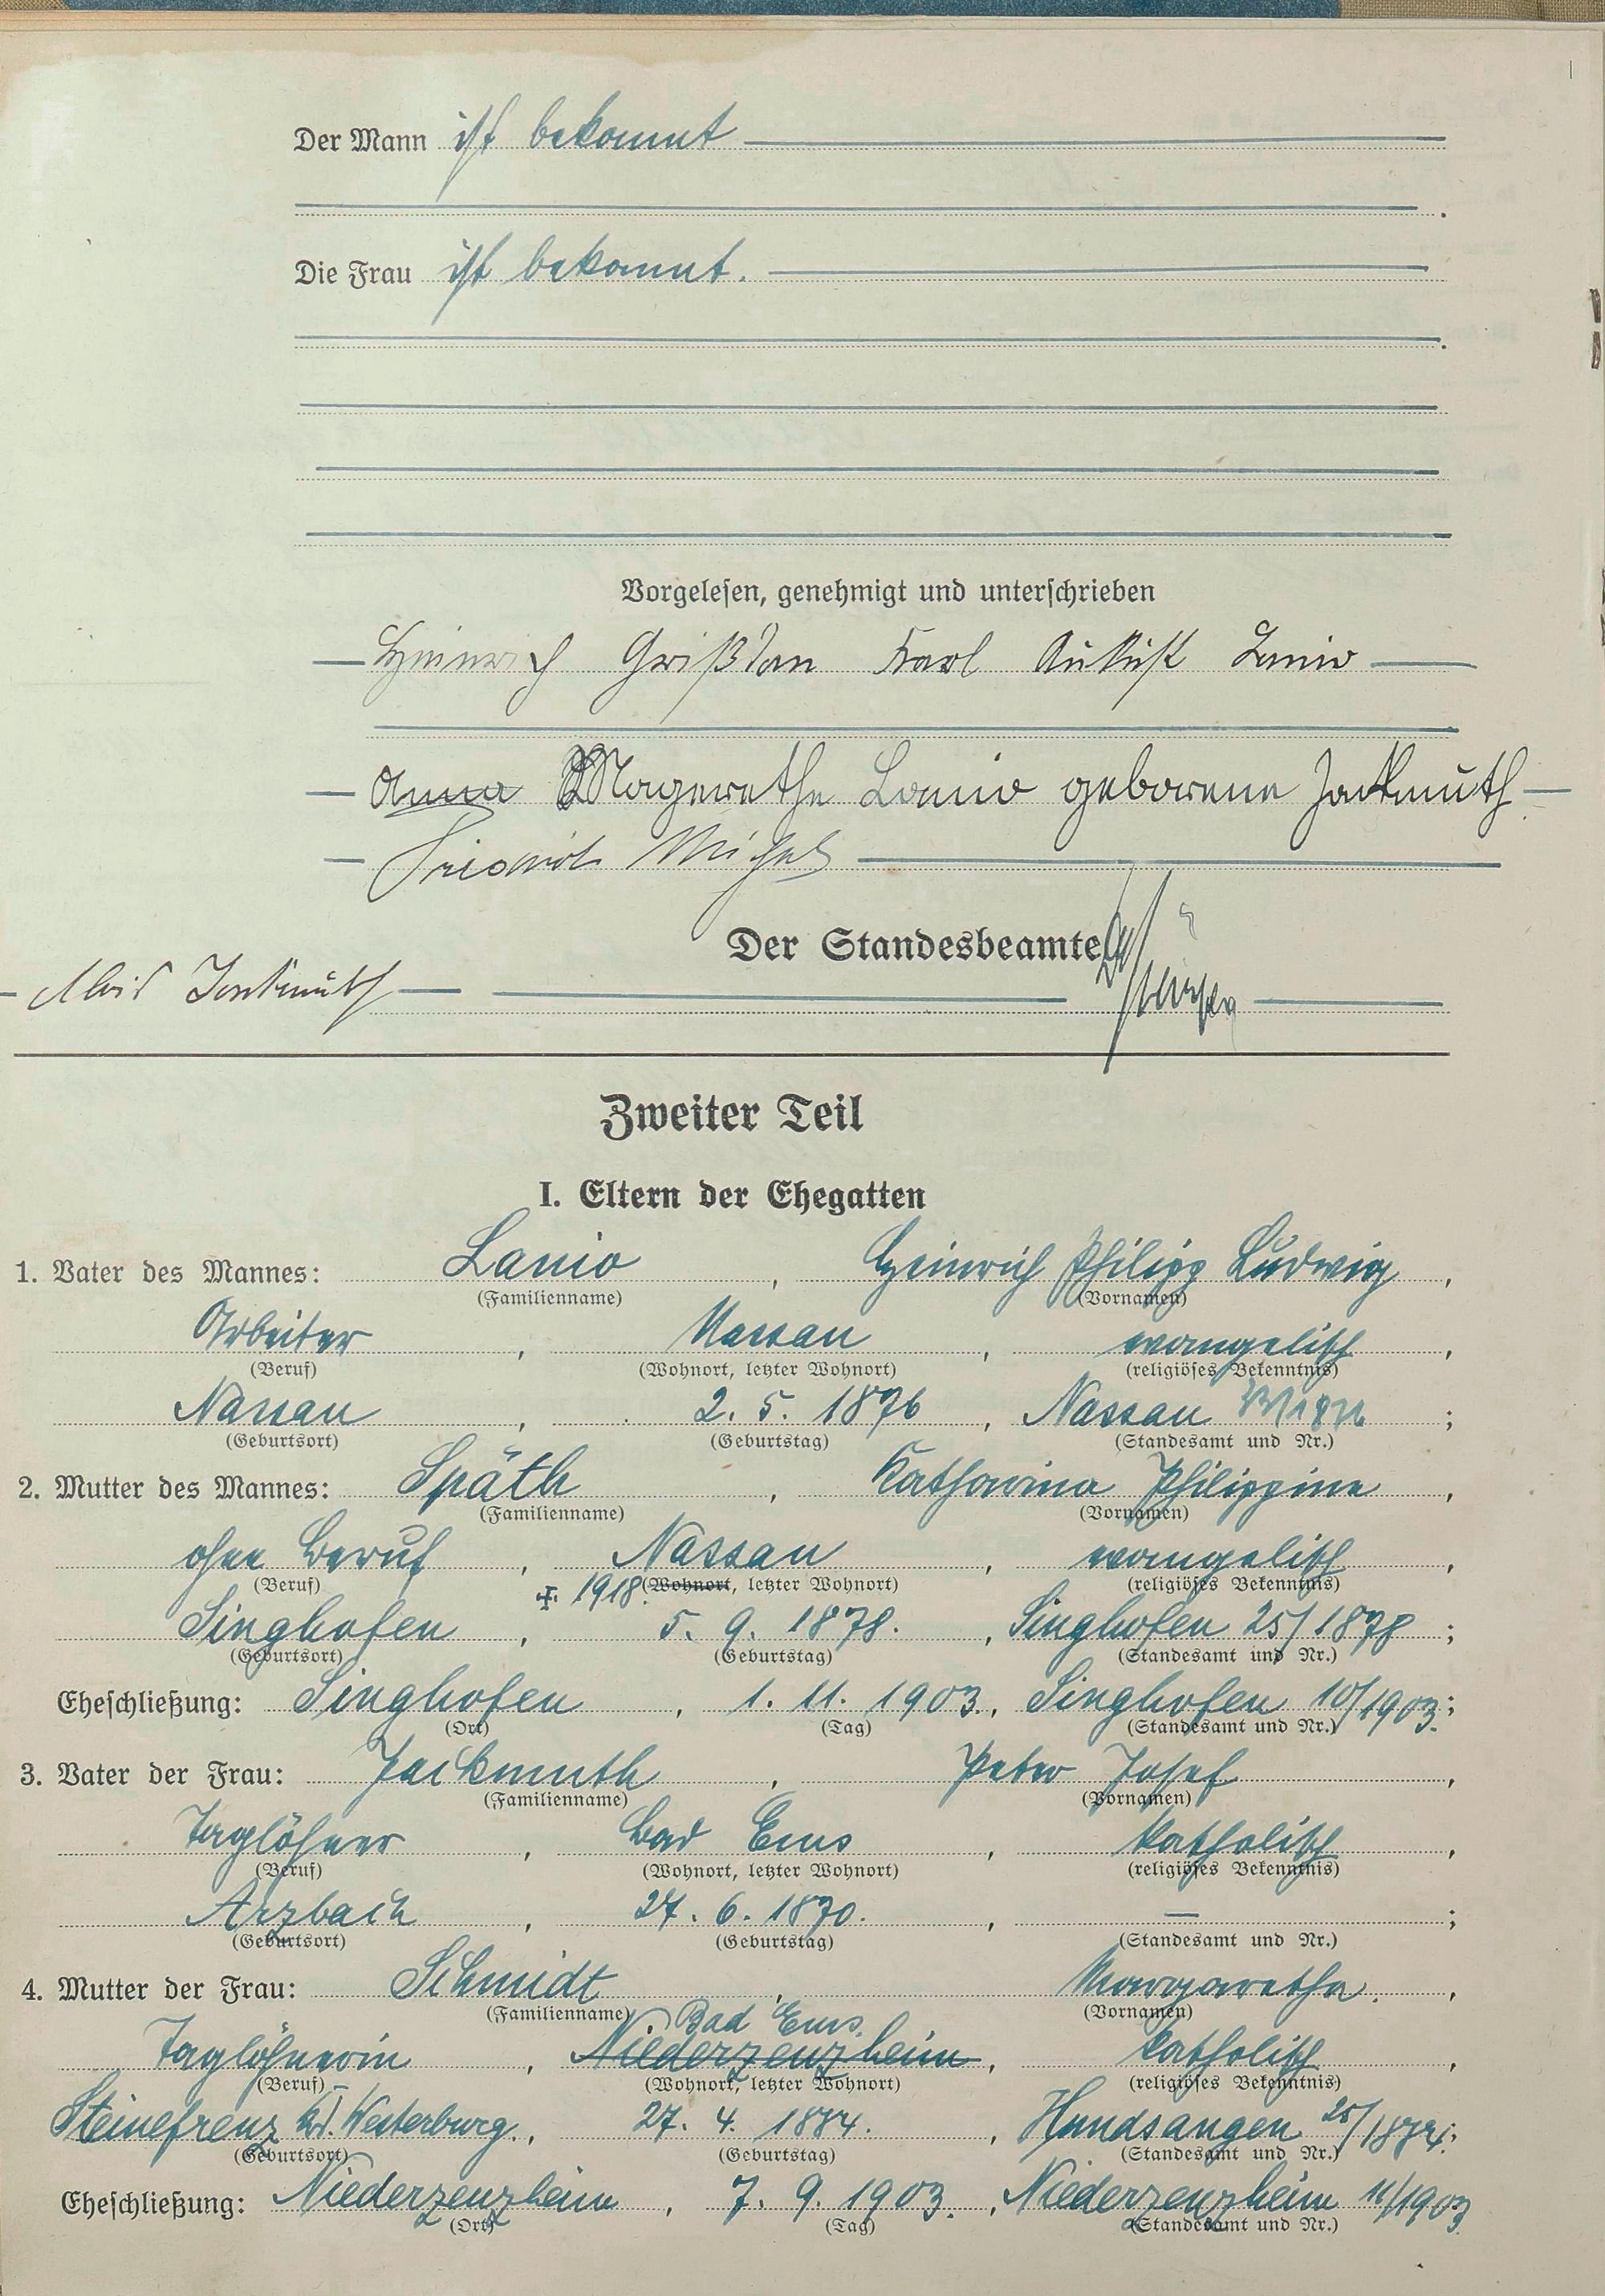 Der Mann ist bekannt
Die Frau ist bekannt.
Vorgelesen, genehmigt und unterschrieben
Heinrich Karl Lanio
Anna Magerethe Lanio geborene Jackmuth
Friedrich
Der Standesbeamte
Alois Jackmuth
Zweiter Teil
I. Eltern der Ehegatten
1. Vater des Mannes: Lanio, Heinrich Philipp Ludwig,
(Familienname) (Vornamen)
Arbeiter, Nassau, evangelisch,
(Beruf) (Wohnort, letzter Wohnort) (religiöses Bekenntnis)
Nassau, 2. 5. 1876, Nassau ;
(Geburtsort) (Geburtstag) (Standesamt und Nr.)
2. Mutter des Mannes: Späth, Katharina Philippine,
(Familienname) (Vornamen)
ohne Beruf, Nassau, evangelisch,
(Beruf) 1918. (Wohnort, letzter Wohnort) (religiöses Bekenntnis)
Singhofen, 5. 9. 1878., Singhofen 25/1878;
(Geburtsort) (Geburtstag) (Standesamt und Nr.)
Eheschließung: Singhofen, 1. 11. 1903., Singhofen 10/1903.;
(Ort) (Tag) (Standesamt und Nr.)
3. Vater der Frau: Jackmuth, Peter Josef,
(Familienname) (Vornamen)
Taglöhner, Bad Ems, katholisch,
(Beruf) (Wohnort, letzter Wohnort) (religiöses Bekenntnis)
Arzbach, 27. 6. 1870., — ;
(Geburtsort) (Geburtstag) (Standesamt und Nr.)
4. Mutter der Frau: Schmidt, Margaretha.,
(Familienname) (Vornamen)
Bad Ems.
Taglöhnerin, Niederzeuzheim, katholisch,
(Beruf) (Wohnort, letzter Wohnort) (religiöses Bekenntnis)
Steinefrenz Westerburg., 27. 4. , Hundsangen 25/;
(Geburtsort) (Geburtstag) (Standesamt und Nr.)
Eheschließung: Niederzeuzheim, 7. 9. 1903., Niederzeuzheim 11/1903
(Ort) (Tag) (Standesamt und Nr.)